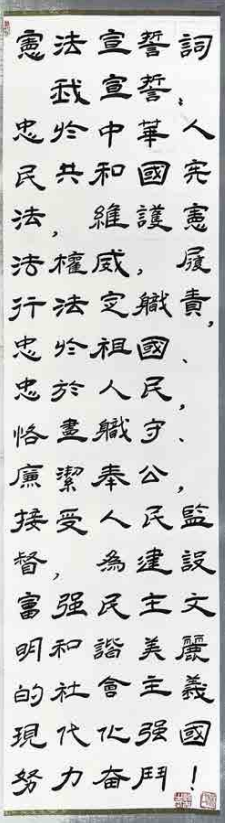 憲法宣誓詞
我宣誓：
忠於中華人
民共和國宪
法，維護憲
法權威，履
行法定職責，
忠於祖國、
忠於人民，
恪盡職守、
廉潔奉公，
接受人民監
督，為建設
富强民主文
明和諧美麗
的社會主義
現代化强國
努力奮鬥！